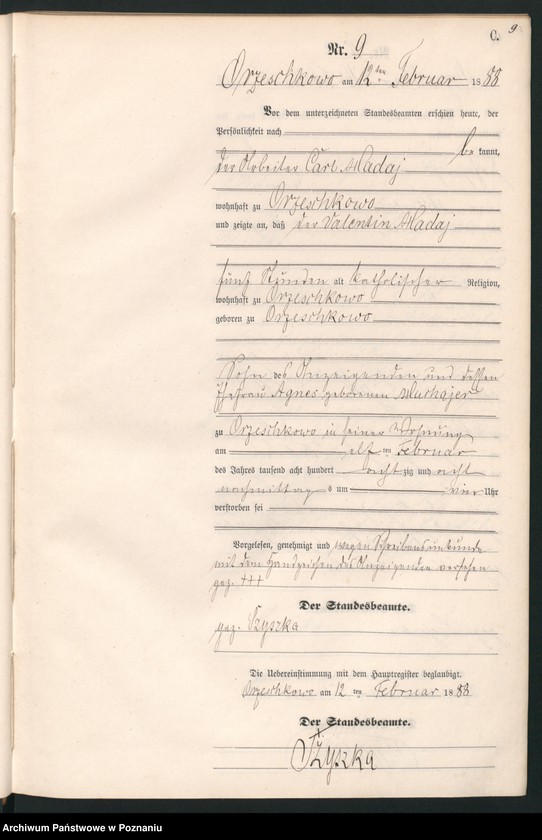 C. 9
Nr. 9
Orzeschkowo am 12ten Februar 1888
Vor dem unterzeichneten Standesbeamten erschien heute, der
Persönlichkeit nach
bekannt,
der Arbeiter Carl Madaj
wohnhaft zu Orzeschkowo
und zeigte an, daß der Valentin Madaj
fünf Stunden alt katholischer Religion,
wohnhaft zu Orzeschkowo
geboren zu Orzeschkowo
Sohn des Anzeigenden und dessen
Ehefrau Agnes geborenen
zu Orzeschkowo in seiner Wohnung
am elf ten Februar
des Jahres tausend acht hundert acht zig und acht
nachmittags um vier Uhr
verstorben sei
Vorgelesen, genehmigt und wegen Schreibensunkunde
mit dem Handzeichen des Anzeigenden versehen
gez. +++
Der Standesbeamte.
gez. Szyszka
Die Uebereinstimmung mit dem Hauptregister beglaubigt.
Orzeschkowo am 12 ten Februar 1888
Der Standesbeamte.
Szyszka
Archiwum Państwowe w Poznaniu